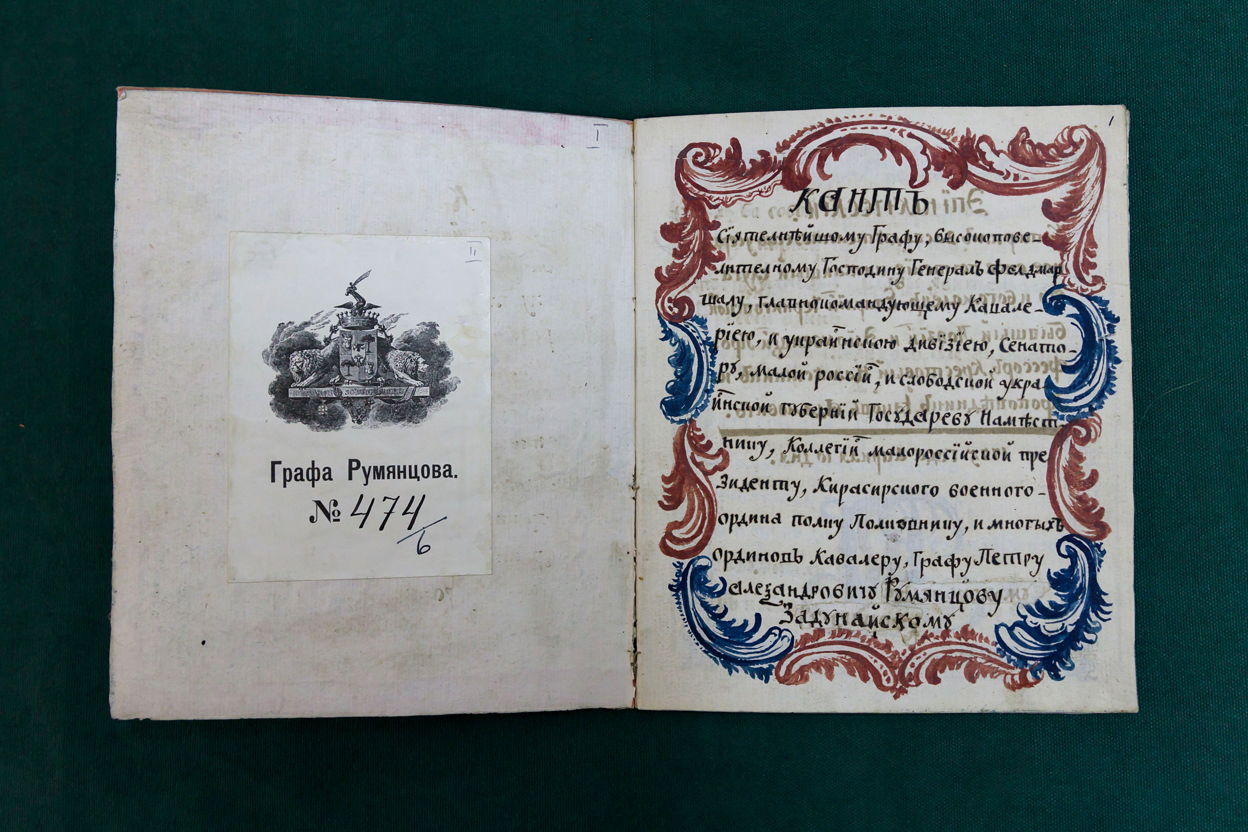 I
II
Графа Румянцова.
№ 474/6
1
КАНТЪ
Сіятелнѣйшому Графу, высокопове-
лителному Господину Генералъ Фелдмар
шалу, главнокомандующему Кавале-
ріею, и украинскою дивізіею, Сенато-
ру, малой россіи, и слободской укра
инской Губерніи Государеву Намѣст
нику, Коллегіи малороссійской пре
зиденту, Кирасирского военного-
ордина полку Полковнику, и многыхъ
ординовъ Кавалеру, Графу Петру
Алеѯандровичу Румянцову
Задунайскому